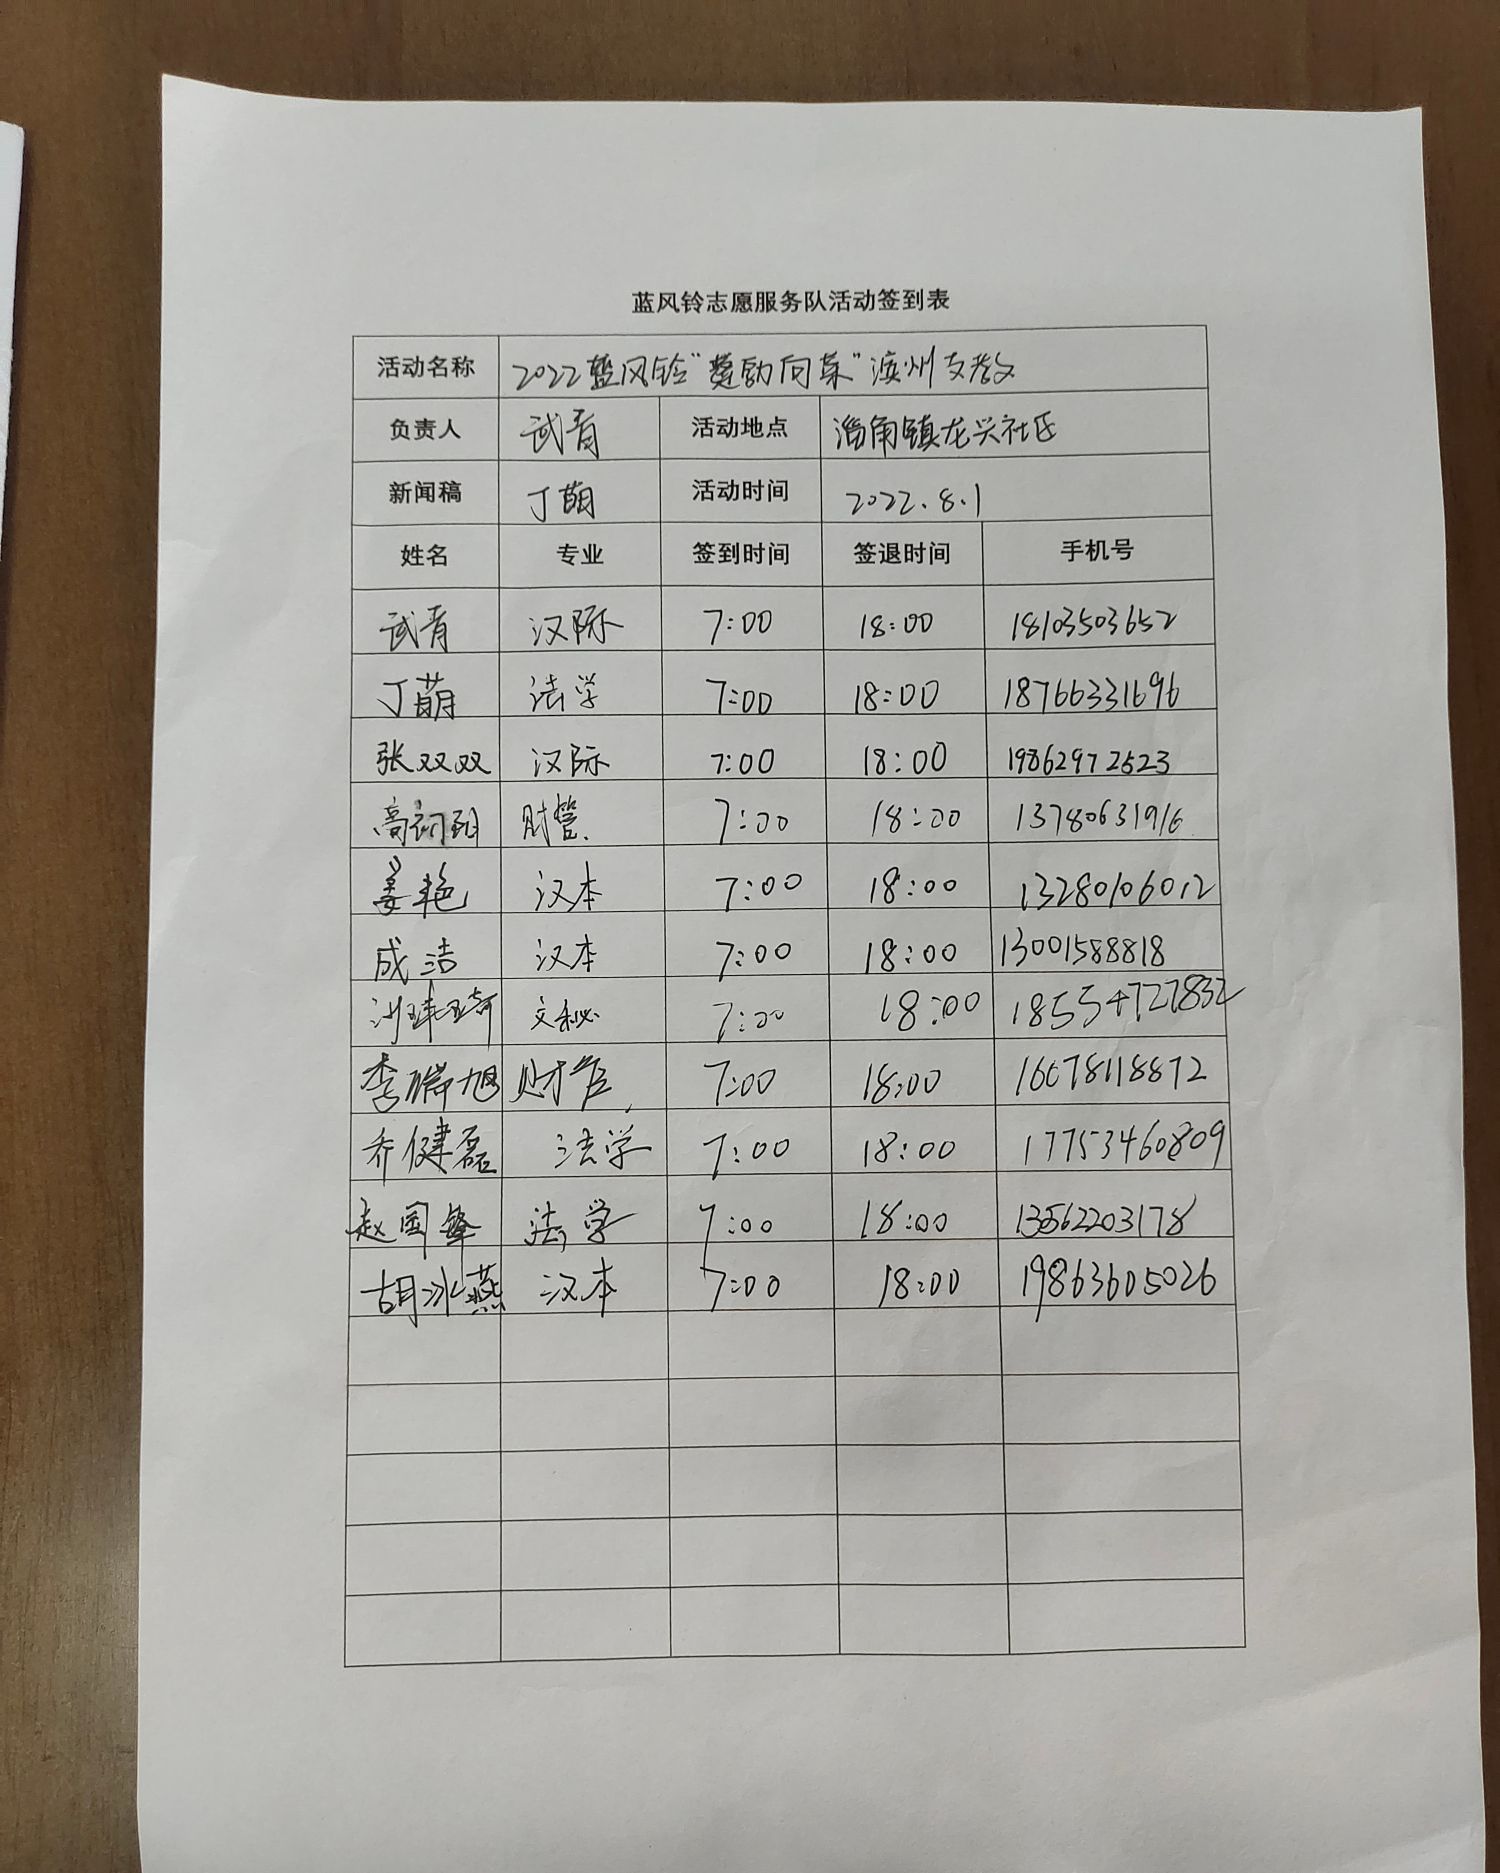 蓝风铃志愿服务队活动签到表
活动名称 2022蓝风铃"蓼勋向菜"滨州支教
负责人 武青 活动地点 淄角镇龙兴社区
新闻稿 丁萌 活动时间 2022.8.1
姓名 专业 签到时间 签退时间 手机号
武青 汉际 7:00 18:00 18103503652
丁萌 法学 7:00 18:00 18766331696
张双双 汉际 7:00 18:00 19862972523
高 财管 7:00 18:00 13780631916
姜艳 汉本 7:00 18:00 13280106012
成洁 汉本 7:00 18:00 13001588818
文秘 7:00 18:00 18554727832
李瑞旭 财管 7:00 18:00 16678118872
乔健磊 法学 7:00 18:00 17753460809
赵国锋 法学 7:00 18:00 13562203178
胡冰燕 汉本 7:00 18:00 19863605026